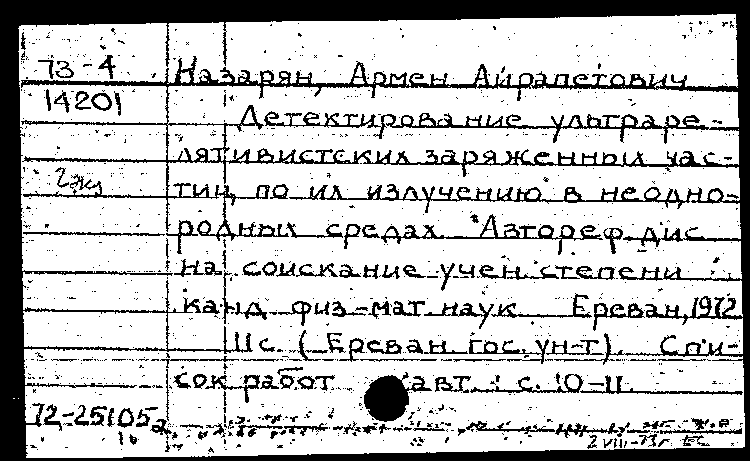 73-4 Назарян, Армен Айрапетович
14201 Детектирование ультраре-
лятивистских заряженных час-
2 экз тиц по их излучению в неодно-
родных средах. Автореф. дис
на соискание учен. степени
канд физ-мат. наук Ереван, 1972
11с. (Ереван. гос. ун-т). Спи-
сок работ авт.: с. 10-11.
72-25105а
16
2 VIII-73г